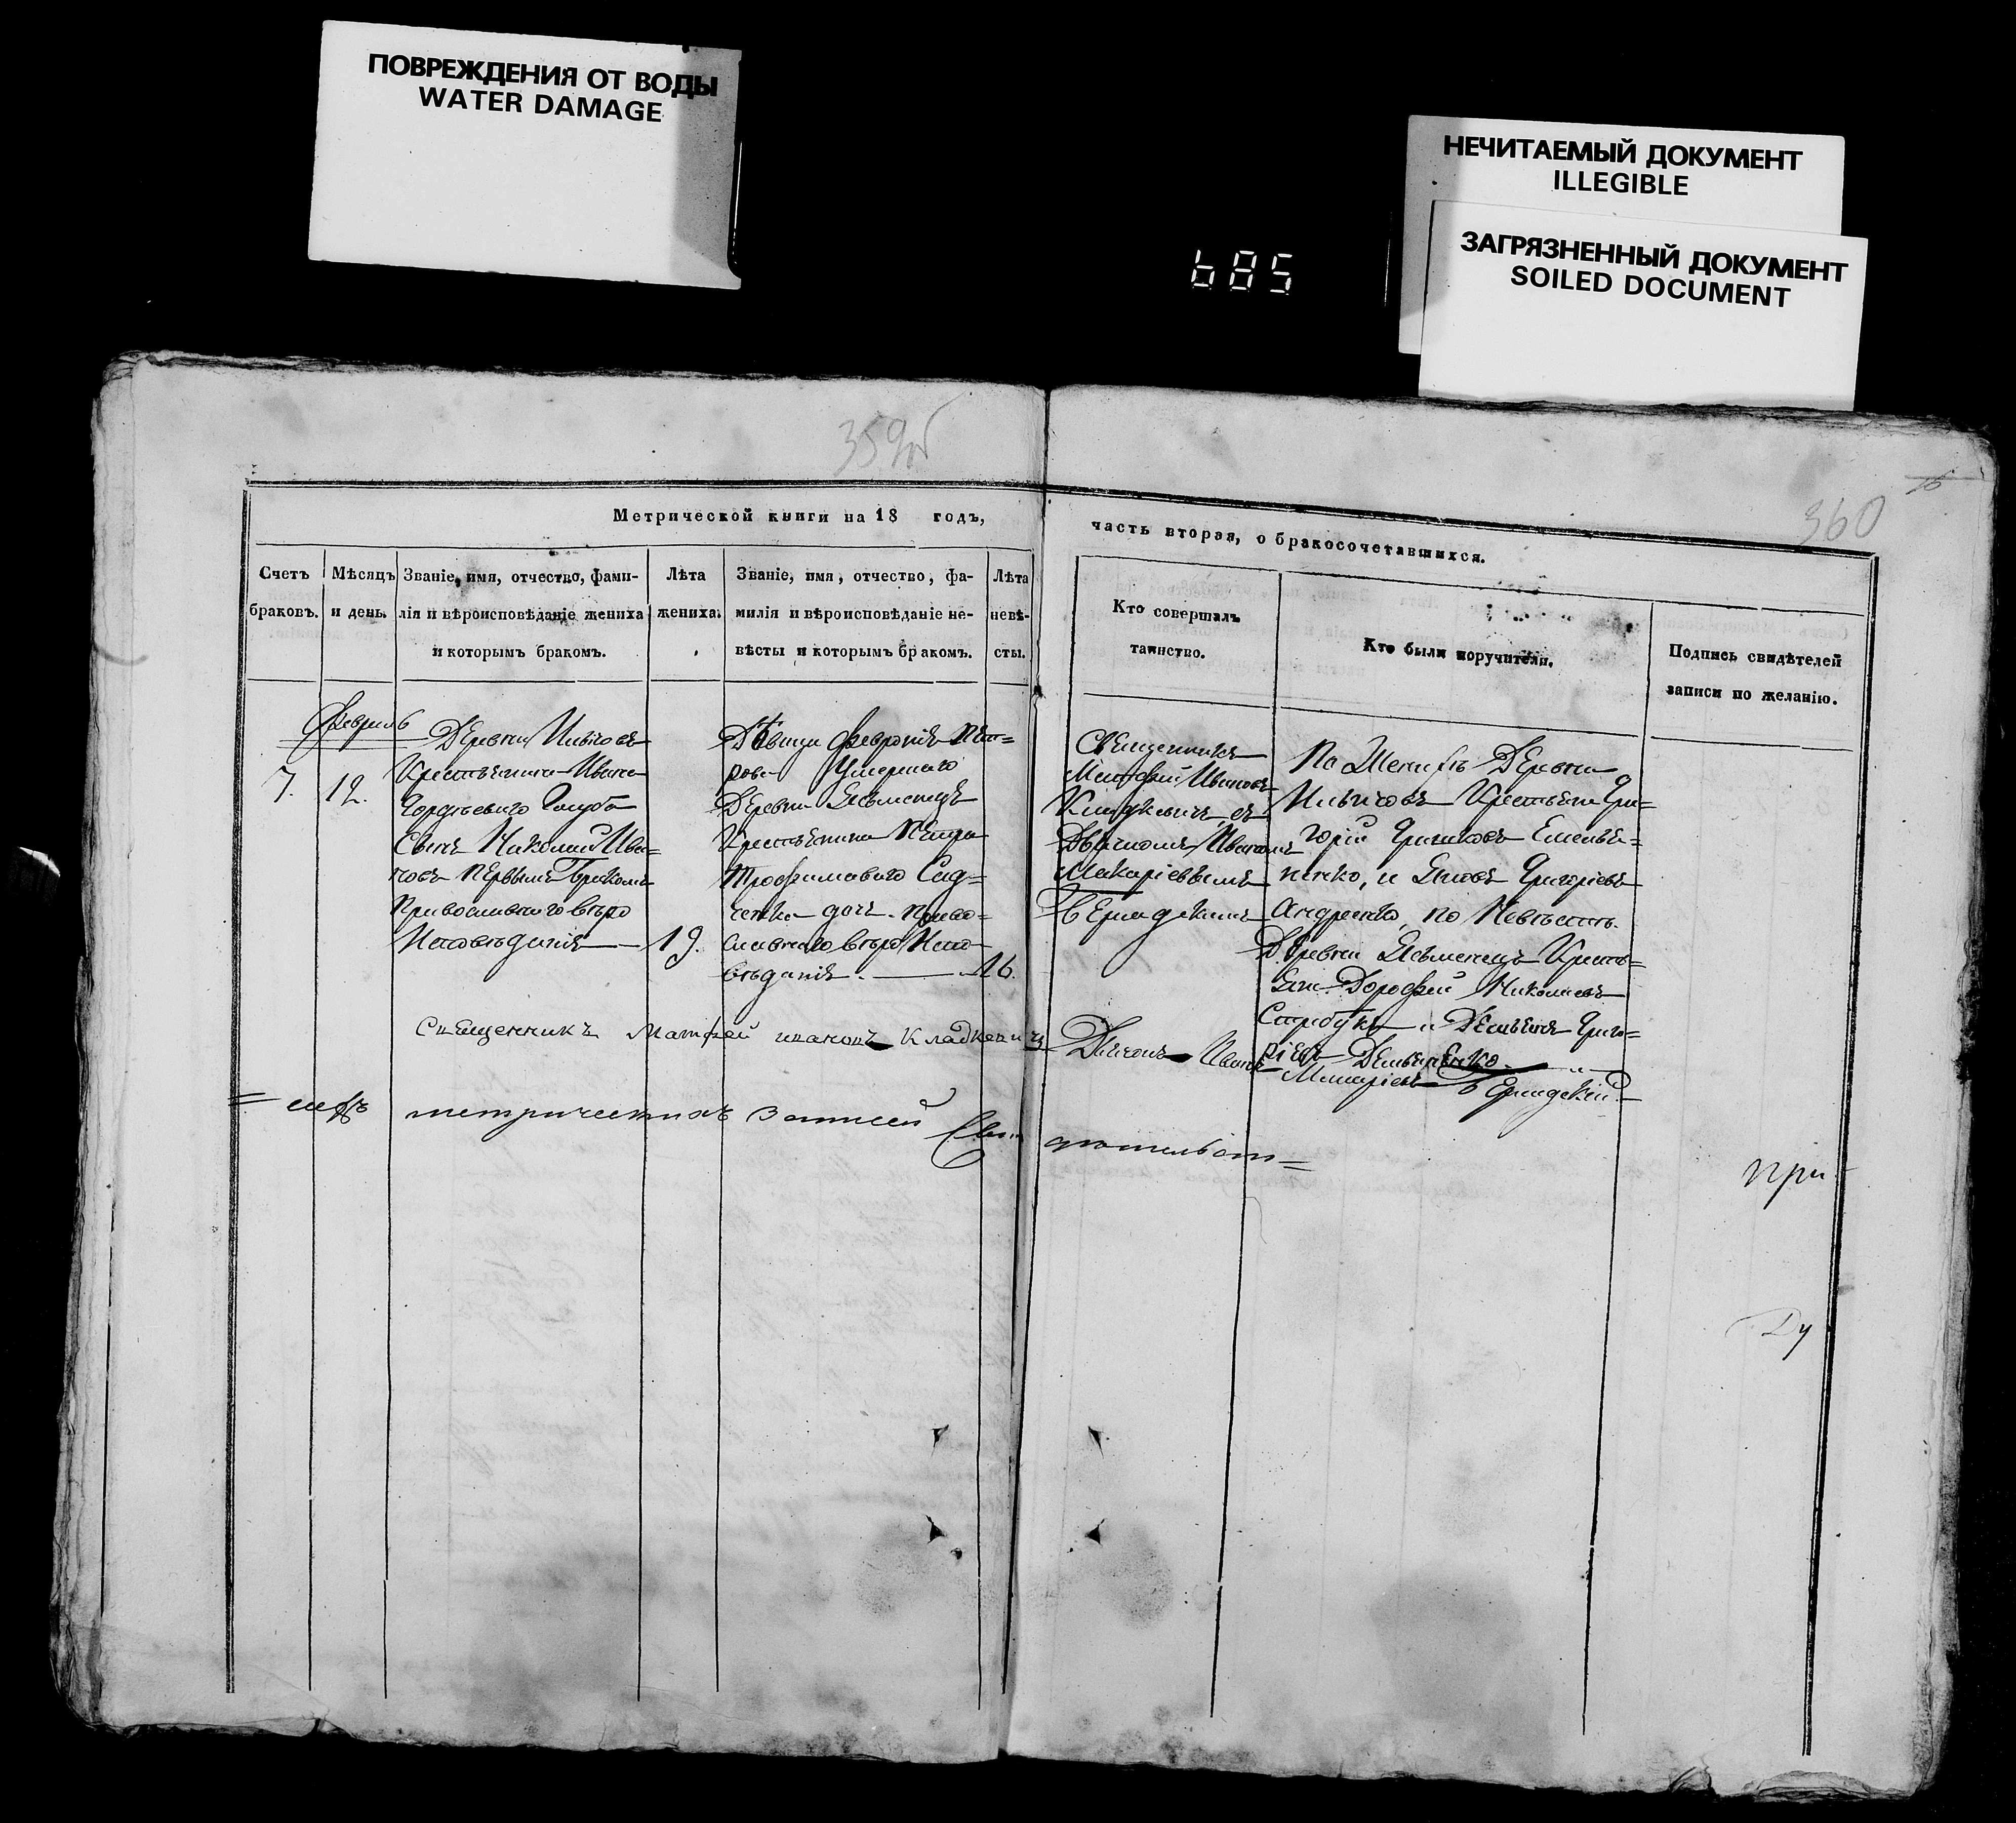 ПОВРЕЖДЕНИЯ ОТ ВОДЫ
WATER DAMAGE
НЕЧИТАЕМЫЙ ДОКУМЕНТ
ILLEGIBLE
ЗАГРЯЗНЕННЫЙ ДОКУМЕНТ
SOILED DOCUMENT
685
359об
360
Метрической книги на 18 годъ,
часть вторая, о бракосочетавшихся.
Счетъ браковъ.
Мѣсяцъ и день.
Званіе, имя, отчество, фами-
лія и вѣроисповѣданіе жениха
и которымъ бракомъ.
Лѣта
жениха.
Званіе, имя, отчество, фа-
милія и вѣроисповѣданіе не-
вѣсты и которымъ бракомъ.
Лѣта
невѣ-
сты.
Кто совершалъ
таинство.
Кто были поручители.
Подпись свидѣтелей
записи по желанію.
7.
12.
Деревни
Крестьянина Ивана
Гордѣеваго Голуба
Сынъ Николай Ива=
новъ Первымъ Бракомъ
Православнаго Вѣро
Исповѣданія
19.
Дѣвица Февронія Пет=
рова Умершаго
Деревни
Крестьянина Петра
Трофимоваго Сад=
ченка дочь Право=
славнаго Вѣро Испо
вѣданія
16.
Священникъ
Матфей Ивановъ
Кладкевичъ съ
Дьячкомъ Иваномъ
Макаріевымъ
По Женихѣ Деревни
Крестьяне Гри=
горій
ненко, и Яковъ Григоріевъ
Андреенко, по Невѣстѣ
Деревни Крестья=
не Дорофей Николаевъ
и Демьянъ Григо=
ріевъ Демьяненко
Священникъ Матфей Ивановъ Кладкевичъ
Дьячокъ Иванъ
Макаріевъ
метрическихъ записей
при
Ду